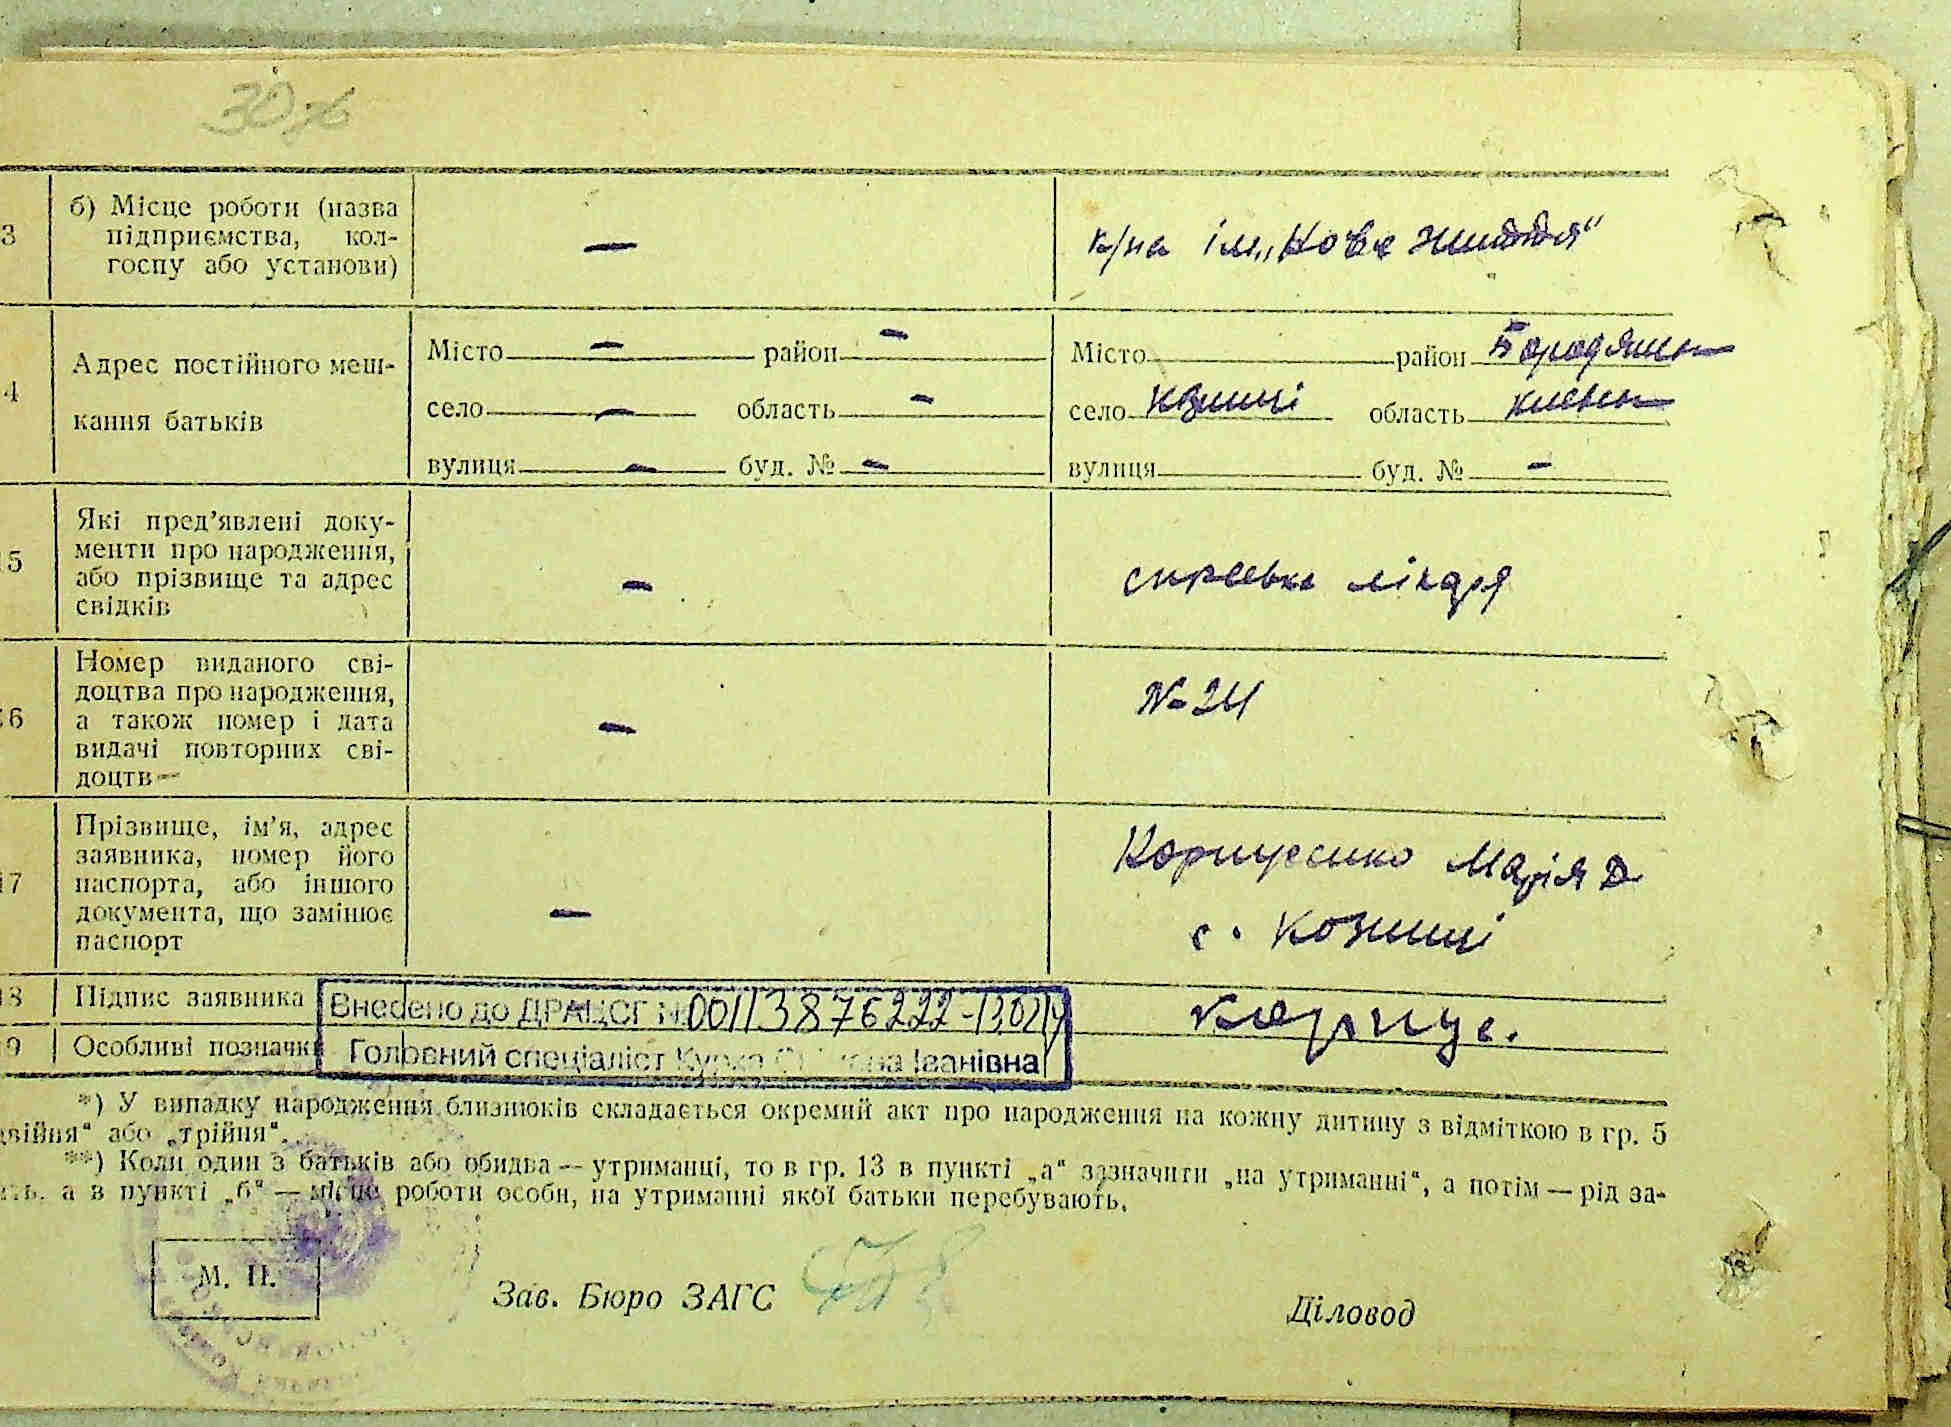 30 зв
3
б) Місце роботи (назва
підприємства, кол-
госпу або установи)
—
к/гп ім. „Нове життя"
4
Адрес постійного меш-
кання батьків
Місто — район —
село — область —
вулиця — буд. № —
Місто район Бородянськ
село Козинці область Київськ
вулиця буд. № —
5
Які пред'явлені доку-
менти про народження,
або прізвище та адрес
свідків
—
справка лікаря
6
Номер виданого сві-
доцтва про народження,
а також номер і дата
видачі повторних сві-
доцтв —
—
№ 24
17
Прізвище, ім'я, адрес
заявника, номер його
паспорта, або іншого
документа, що замінює
паспорт
—
Марія Д
с. Козинці
18
Підпис заявника
Внесено до ДРАЦСГ № 00113876222
9
Особливі позначки
Головний спеціаліст Іванівна
*) У випадку народження близнюків складається окремий акт про народження на кожну дитину з відміткою в гр. 5
двійня" або „трійня".
**) Коли один з батьків або обидва — утриманці, то в гр. 13 в пункті „а" зазначити „на утриманні", а потім — рід за-
ть, а в пункті „б" — місце роботи особи, на утриманні якої батьки перебувають.
М. П.
Зав. Бюро ЗАГС
Діловод